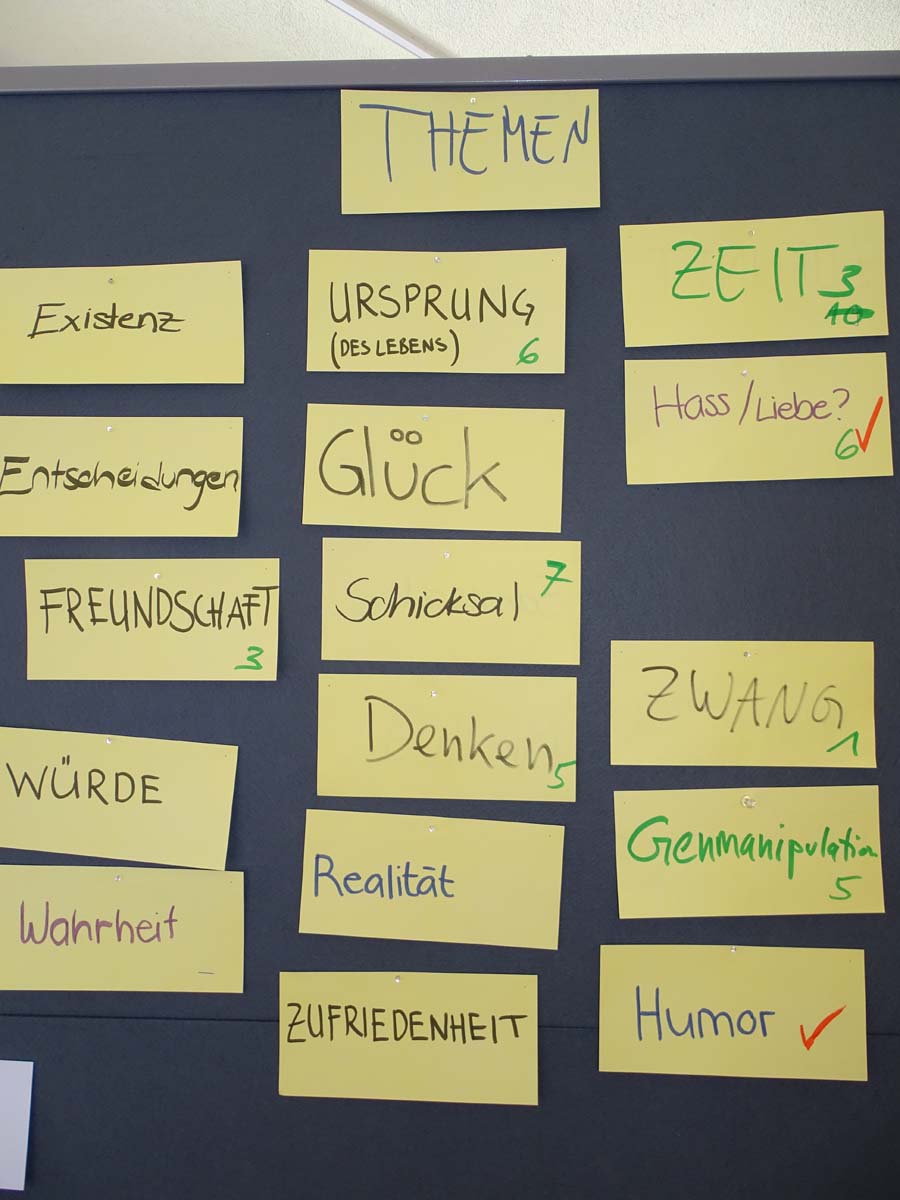 THEMEN
Existenz
Entscheidungen
FREUNDSCHAFT
3
WÜRDE
Wahrheit
URSPRUNG
(DES LEBENS) 6
Glück
Schicksal 7
Denken 5
Realität
ZUFRIEDENHEIT
ZEIT 3
10
Hass/Liebe?
6 ✓
ZWANG
1
Genmanipulation
5
Humor ✓